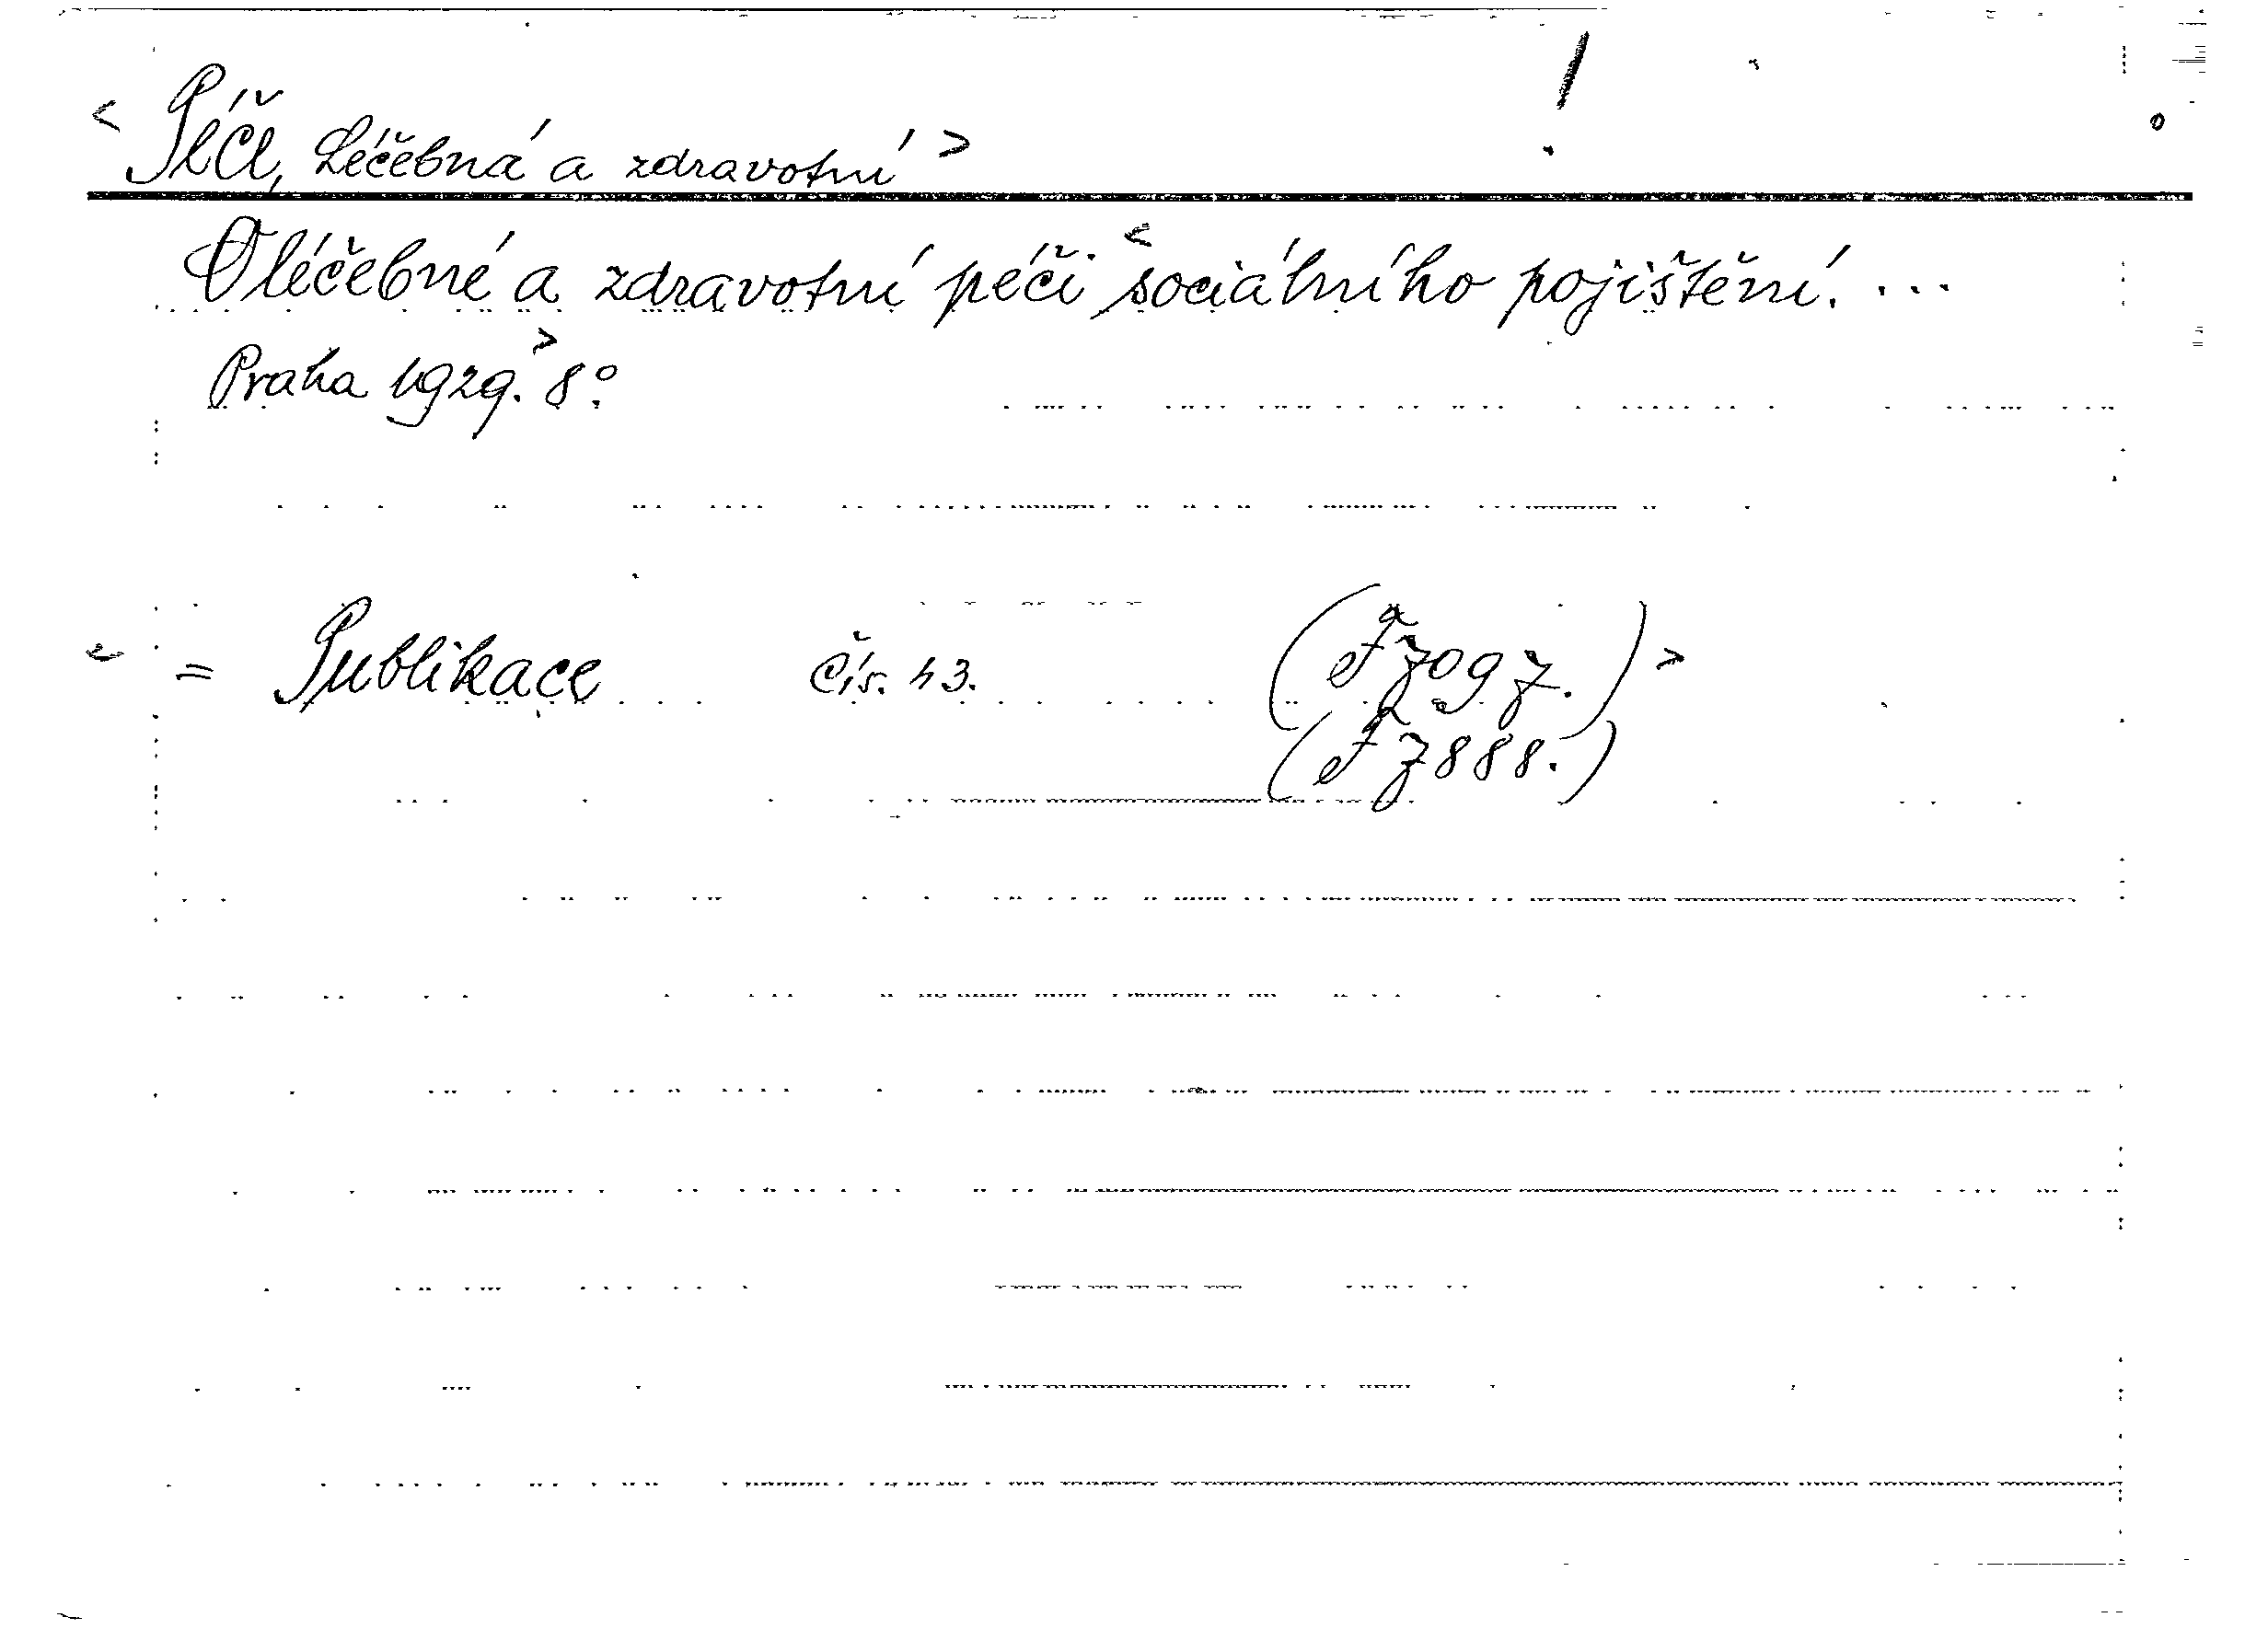 < Péče, Léčebná a zdravotní > !
O léčebné a zdravotní péči < sociálního pojištění. ...
Praha 1929. > 8°.
= Publikace čís. 43.
7097.) >
7888.)